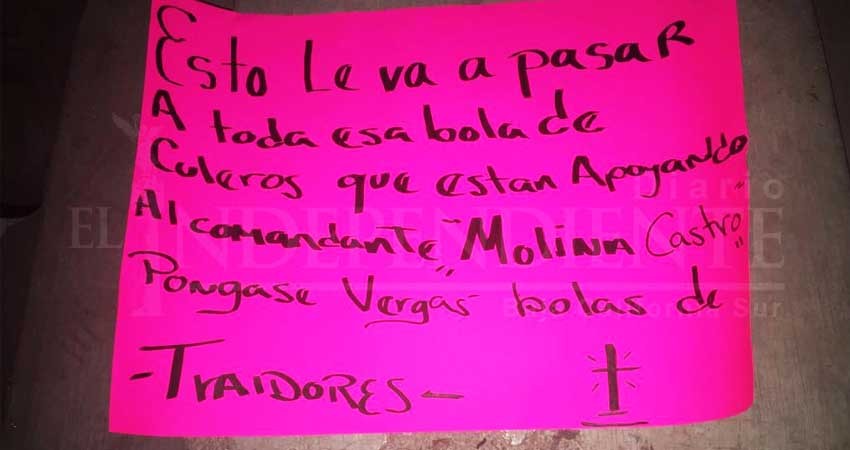 Esto Le va a pasar
A toda esa bola de
Culeros que estan Apoyando
Al comandante "Molina Castro"
Pongase Vergas bolas de
-TRAIDORES-
Diario
EL INDEPENDIENTE
Baja California Sur